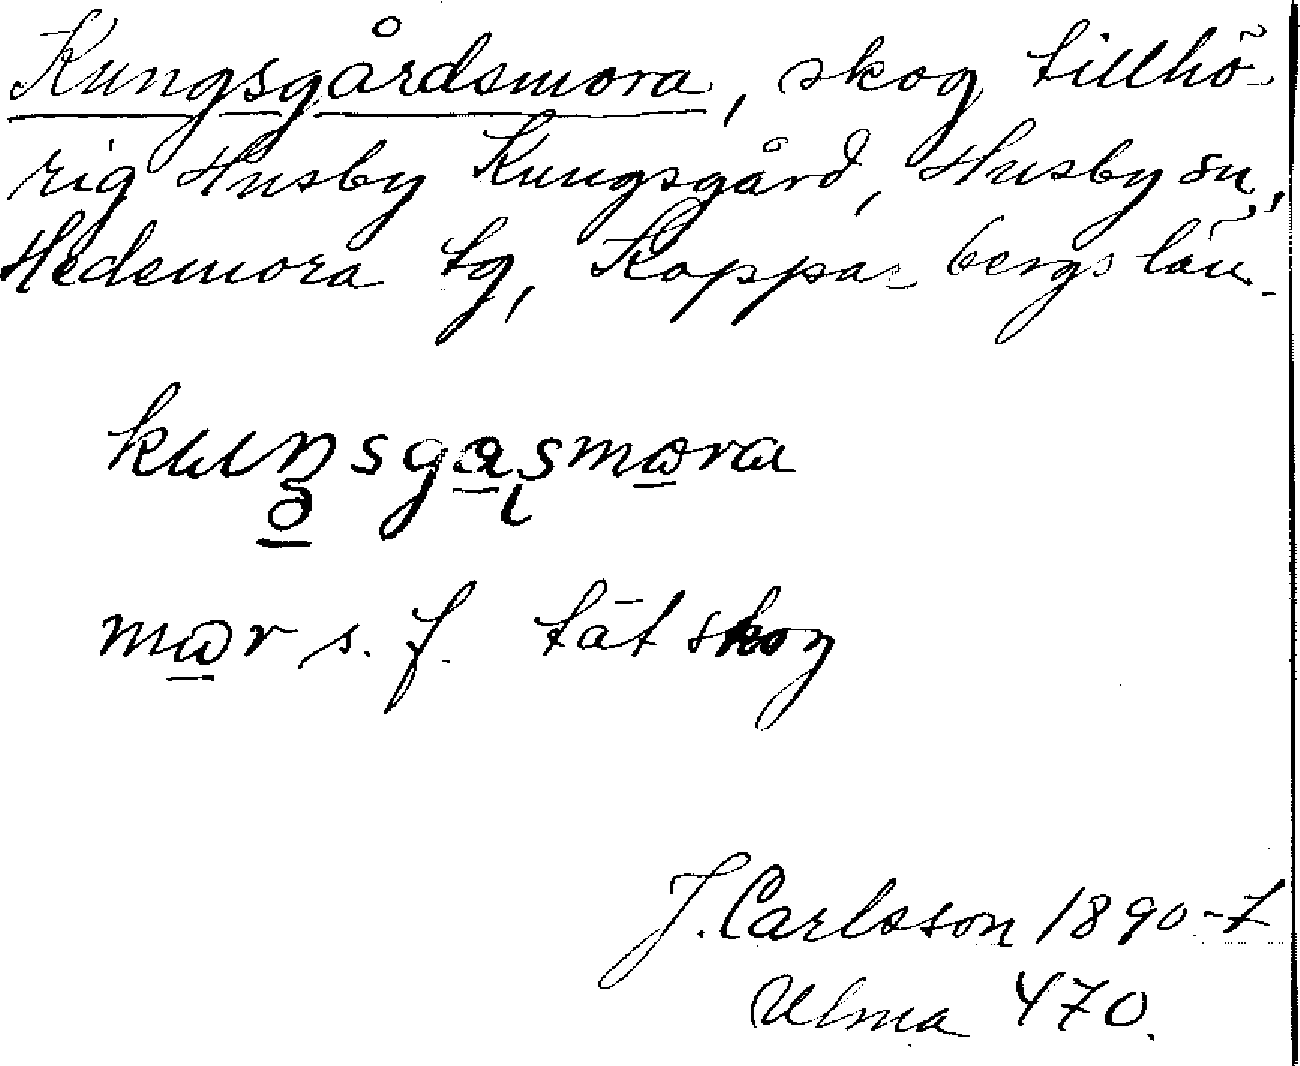 Kungsgårdsmora, skog tillhö-
rig Husby Kungsgård, Husby sn,
Hedemora tg, Kopparbergs län.
s. f. tät skog
J. Carlsson 1890-t
Ulma 470.